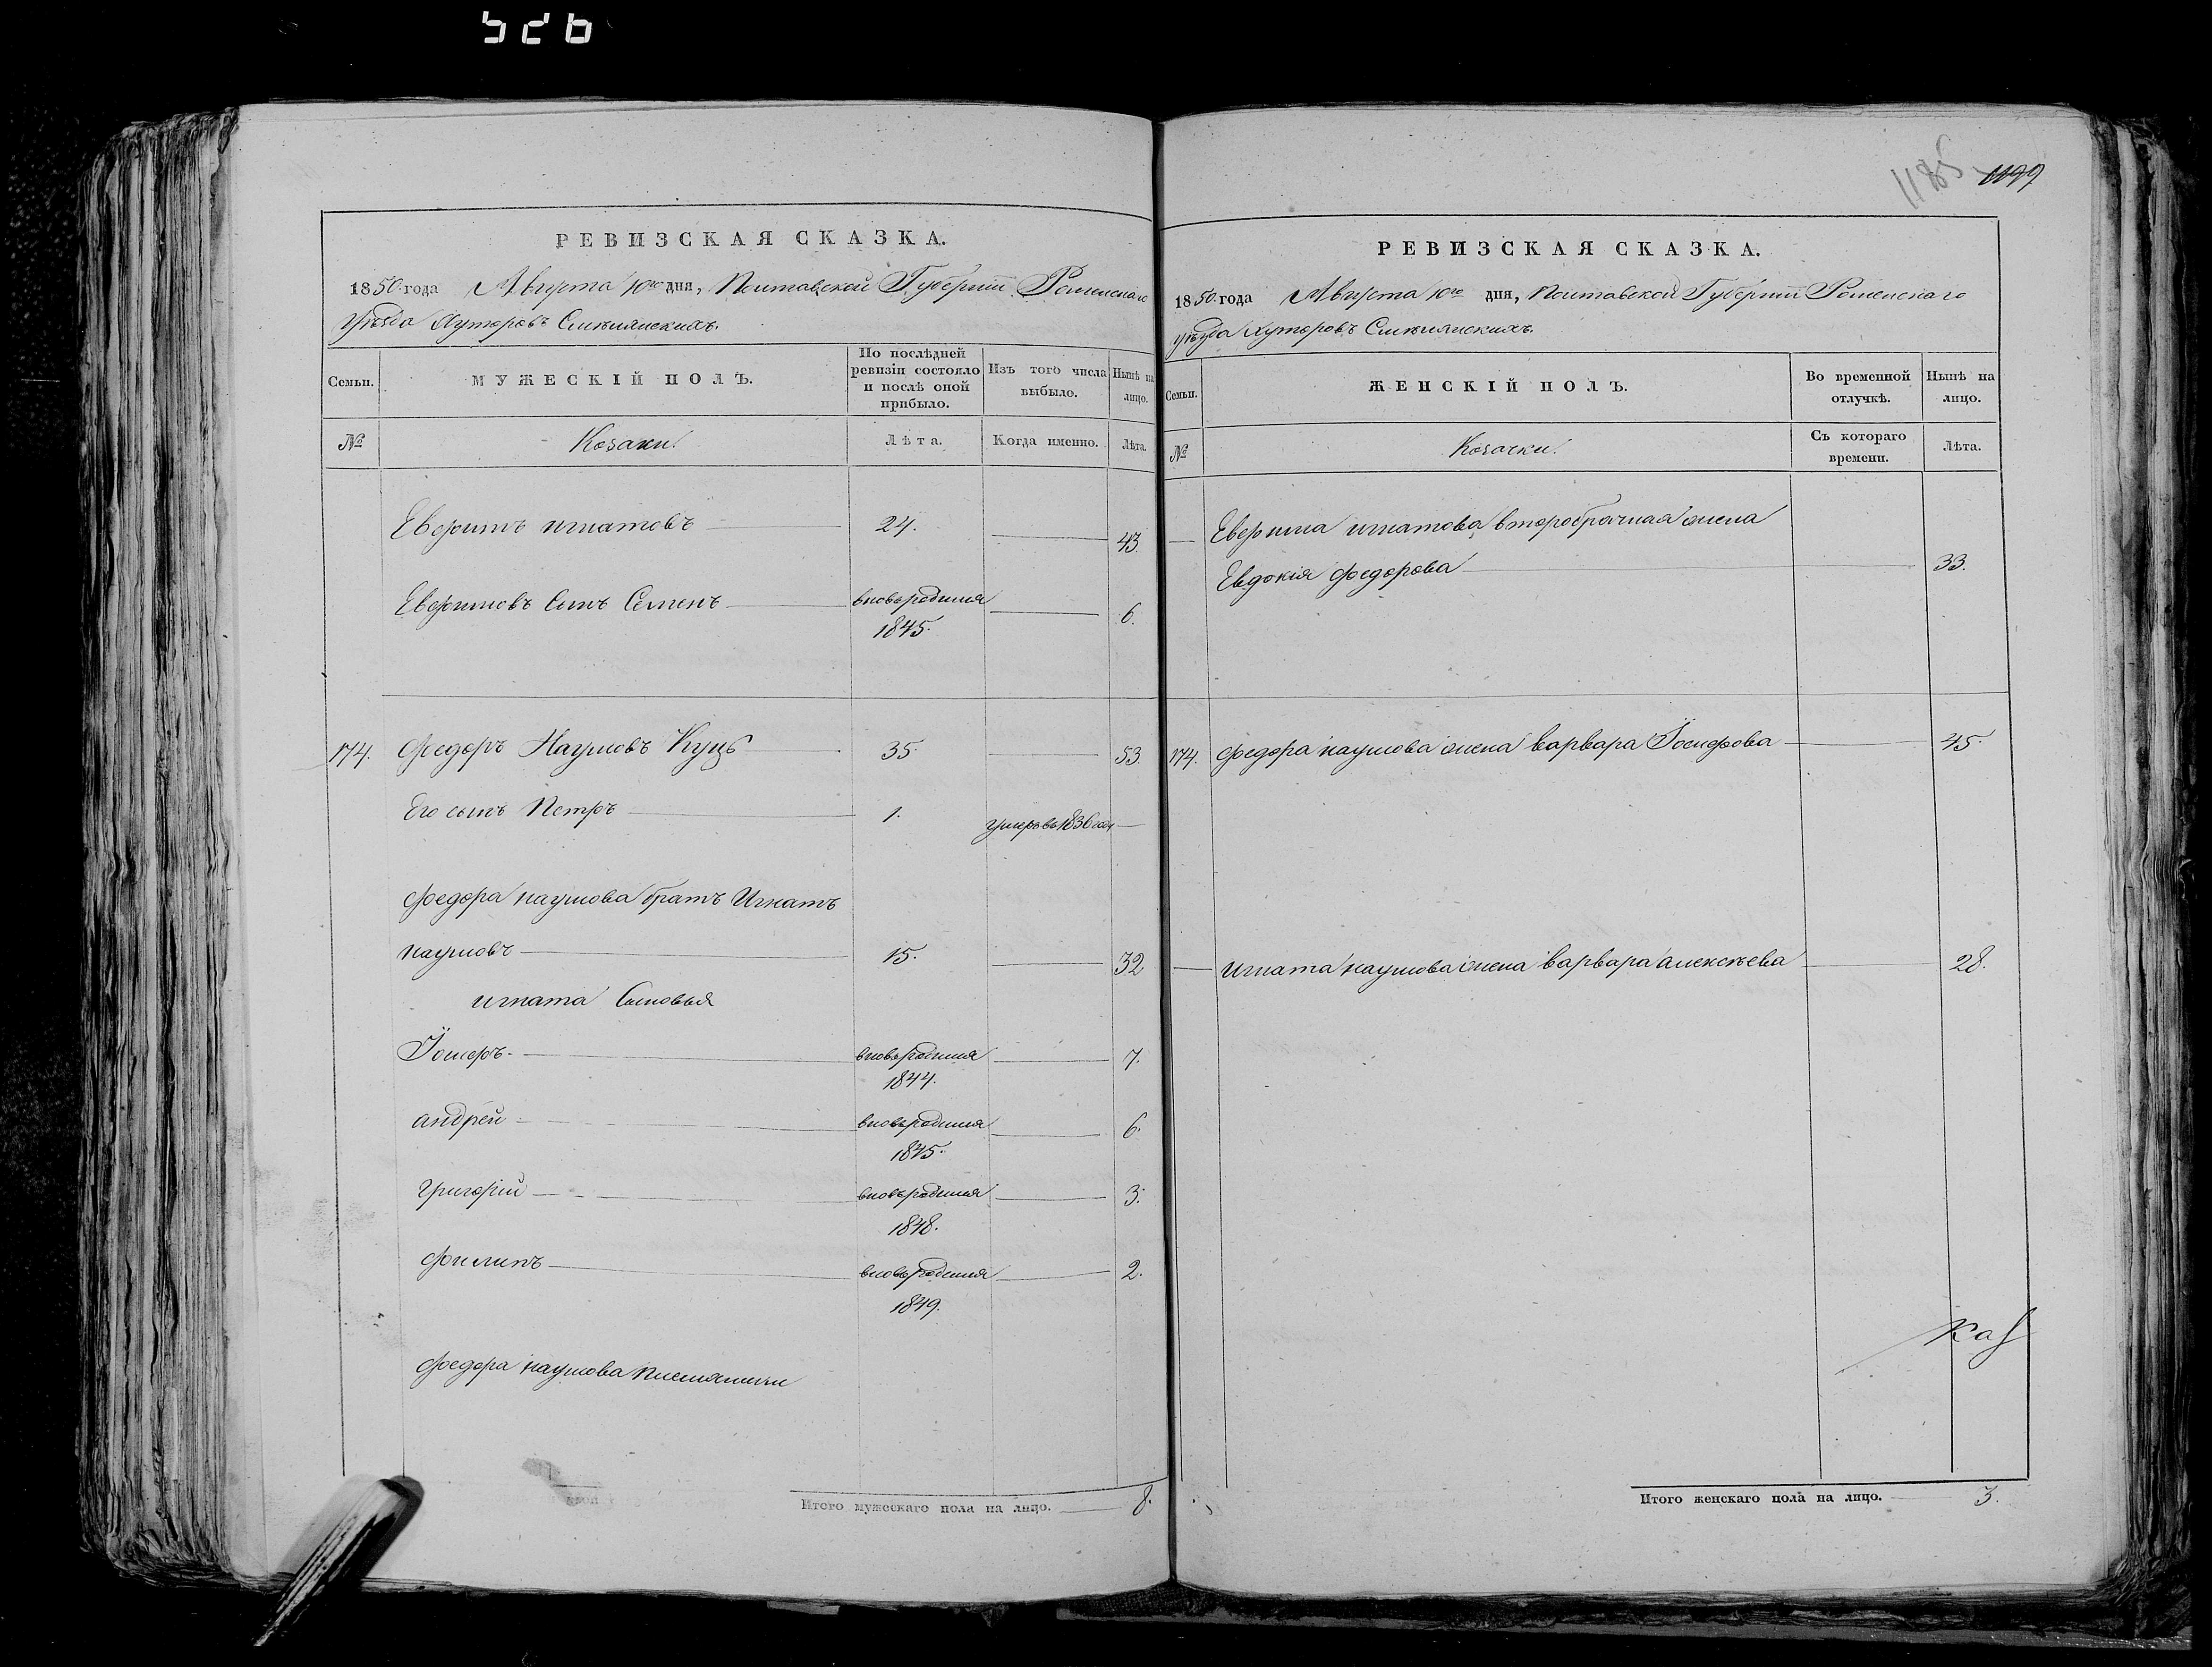 526
1185
1199
РЕВИЗСКАЯ СКАЗКА.
1850 года Августа 10го дня, Полтавской Губерніи Роменскаго
уѣзда Хуторовъ Смѣлянскихъ.
Семьи.
МУЖЕСКІЙ ПОЛЪ.
По послѣдней ревизіи состояло и послѣ оной прибыло.
Изъ того числа выбыло.
Нынѣ на лицо.
№
Козаки.
Лѣта.
Когда именно.
Лѣта.
Игнатовъ 24. 43.
Сынъ Семенъ вновьродился 6.
1845.
174. Федоръ Наумовъ Куцъ 35. 53.
Его сынъ Петръ 1. умеръ въ 1836 году
Федора наумова братъ Игнатъ
наумовъ 15. 32
игната Сыновья
вновьродился 7.
1844.
андрей вновьродился 6.
1845.
григорій вновьродился 3.
1848.
филипъ вновьродился 2.
1849.
федора наумова племянники
Итого мужескаго пола на лицо. 8.
РЕВИЗСКАЯ СКАЗКА.
1850 года Августа 10го дня, Полтавской Губерніи Роменскаго
уѣзда хуторовъ Смѣлянскихъ.
Семьи.
ЖЕНСКІЙ ПОЛЪ.
Во временной отлучкѣ.
Нынѣ на лицо.
№
Козачки.
Съ котораго времени.
Лѣта.
игнатова второбрачная жена
Евдокія федорова 33.
174. федора наумова жена варвара Іосифова 45.
игната наумова жена варвара алексѣева 28.
Каз
Итого женскаго пола на лицо. 3.